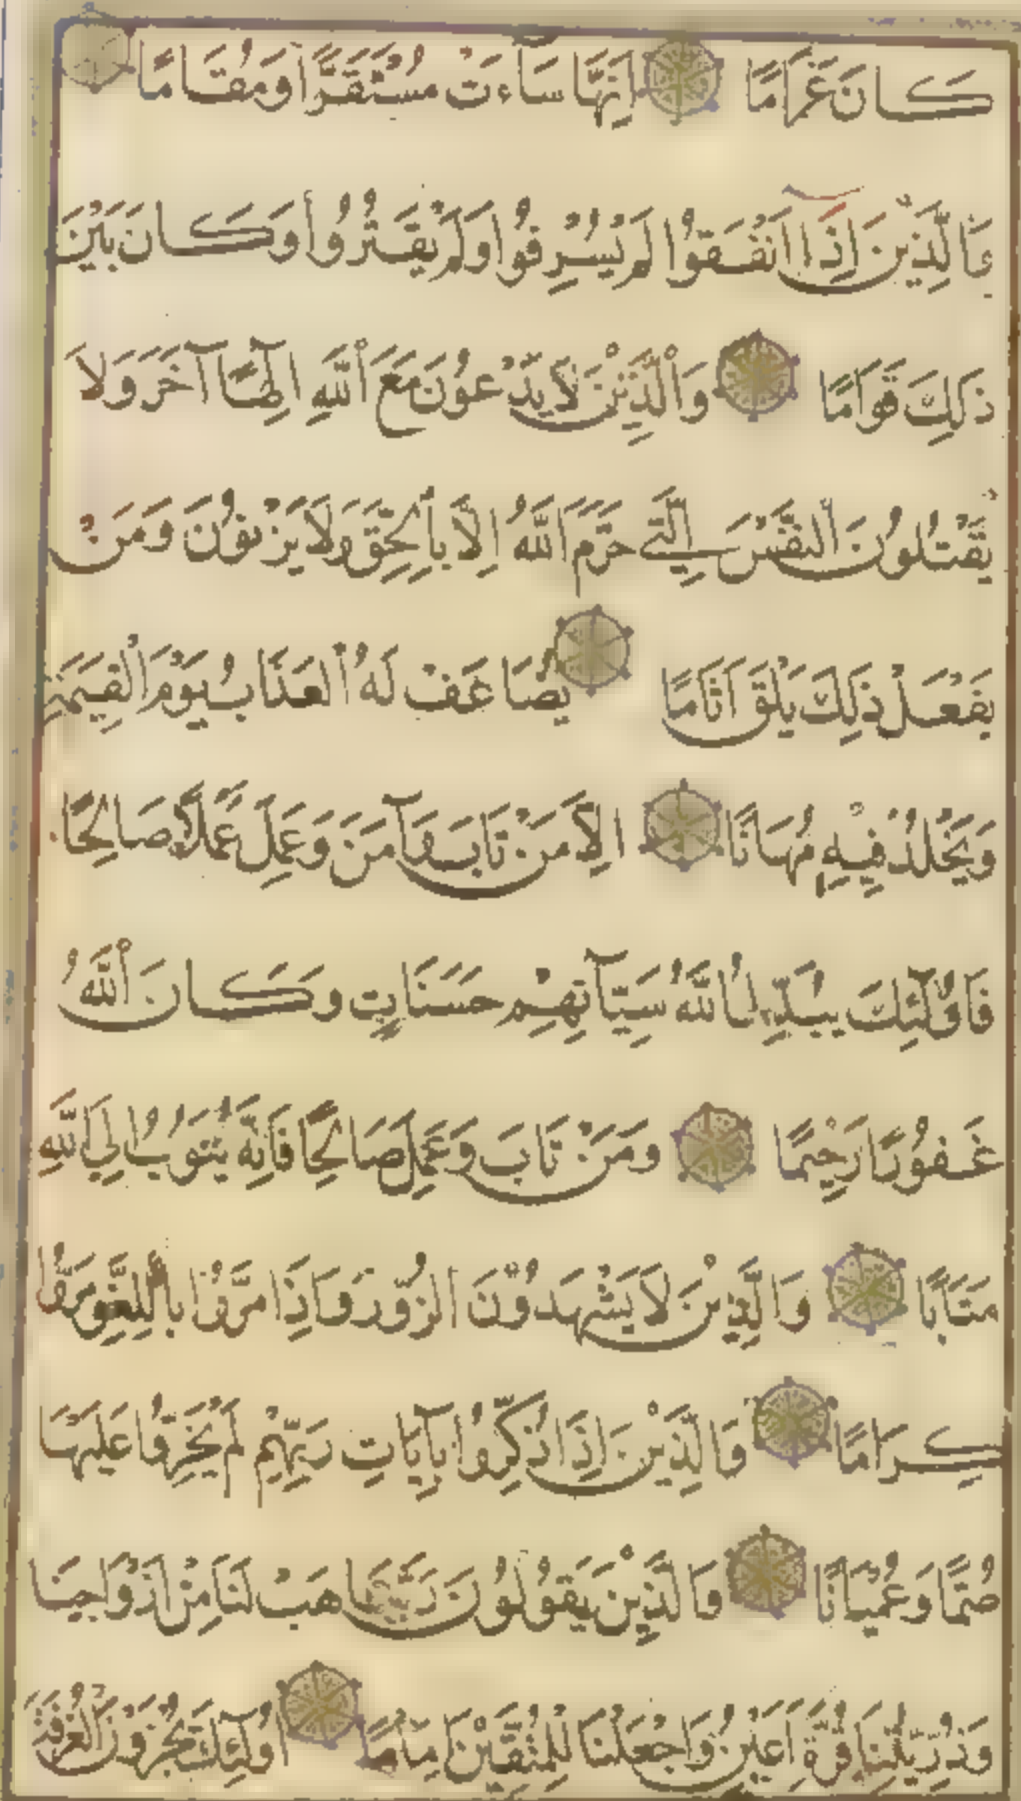 كَانَ غَرَامًا اِنَّهَا سَآءَتْ مُسْتَقَرًّا وَمُقَامًا
وَالَّذِينَ اِذَا اَنْفَقُوا لَمْ يُسْرِفُوا وَلَمْ يَقْتُرُوا وَكَانَ بَيْنَ
ذٰلِكَ قَوَامًا وَالَّذِينَ لَا يَدْعُونَ مَعَ اللّٰهِ اِلٰهًا آخَرَ وَلَا
يَقْتُلُونَ النَّفْسَ الَّتِي حَرَّمَ اللّٰهُ اِلَّا بِالْحَقِّ وَلَا يَزْنُونَ وَمَنْ
يَفْعَلْ ذٰلِكَ يَلْقَ اَثَامًا يُضَاعَفْ لَهُ الْعَذَابُ يَوْمَ الْقِيٰمَةِ
وَيَخْلُدْ فِيهِ مُهَانًا اِلَّا مَنْ تَابَ وَآمَنَ وَعَمِلَ عَمَلًا صَالِحًا
فَاُولٰئِكَ يُبَدِّلُ اللّٰهُ سَيِّآتِهِمْ حَسَنَاتٍ وَكَانَ اللّٰهُ
غَفُورًا رَحِيمًا وَمَنْ تَابَ وَعَمِلَ صَالِحًا فَاِنَّهُ يَتُوبُ اِلَى اللّٰهِ
مَتَابًا وَالَّذِينَ لَا يَشْهَدُونَ الزُّورَ وَاِذَا مَرُّوا بِاللَّغْوِ مَرُّوا
كِرَامًا وَالَّذِينَ اِذَا ذُكِّرُوا بِآيَاتِ رَبِّهِمْ لَمْ يَخِرُّوا عَلَيْهَا
صُمًّا وَعُمْيَانًا وَالَّذِينَ يَقُولُونَ رَبَّنَا هَبْ لَنَا مِنْ اَزْوَاجِنَا
وَذُرِّيَّاتِنَا قُرَّةَ اَعْيُنٍ وَاجْعَلْنَا لِلْمُتَّقِينَ اِمَامًا اُولٰئِكَ يُجْزَوْنَ الْغُرْفَةَ